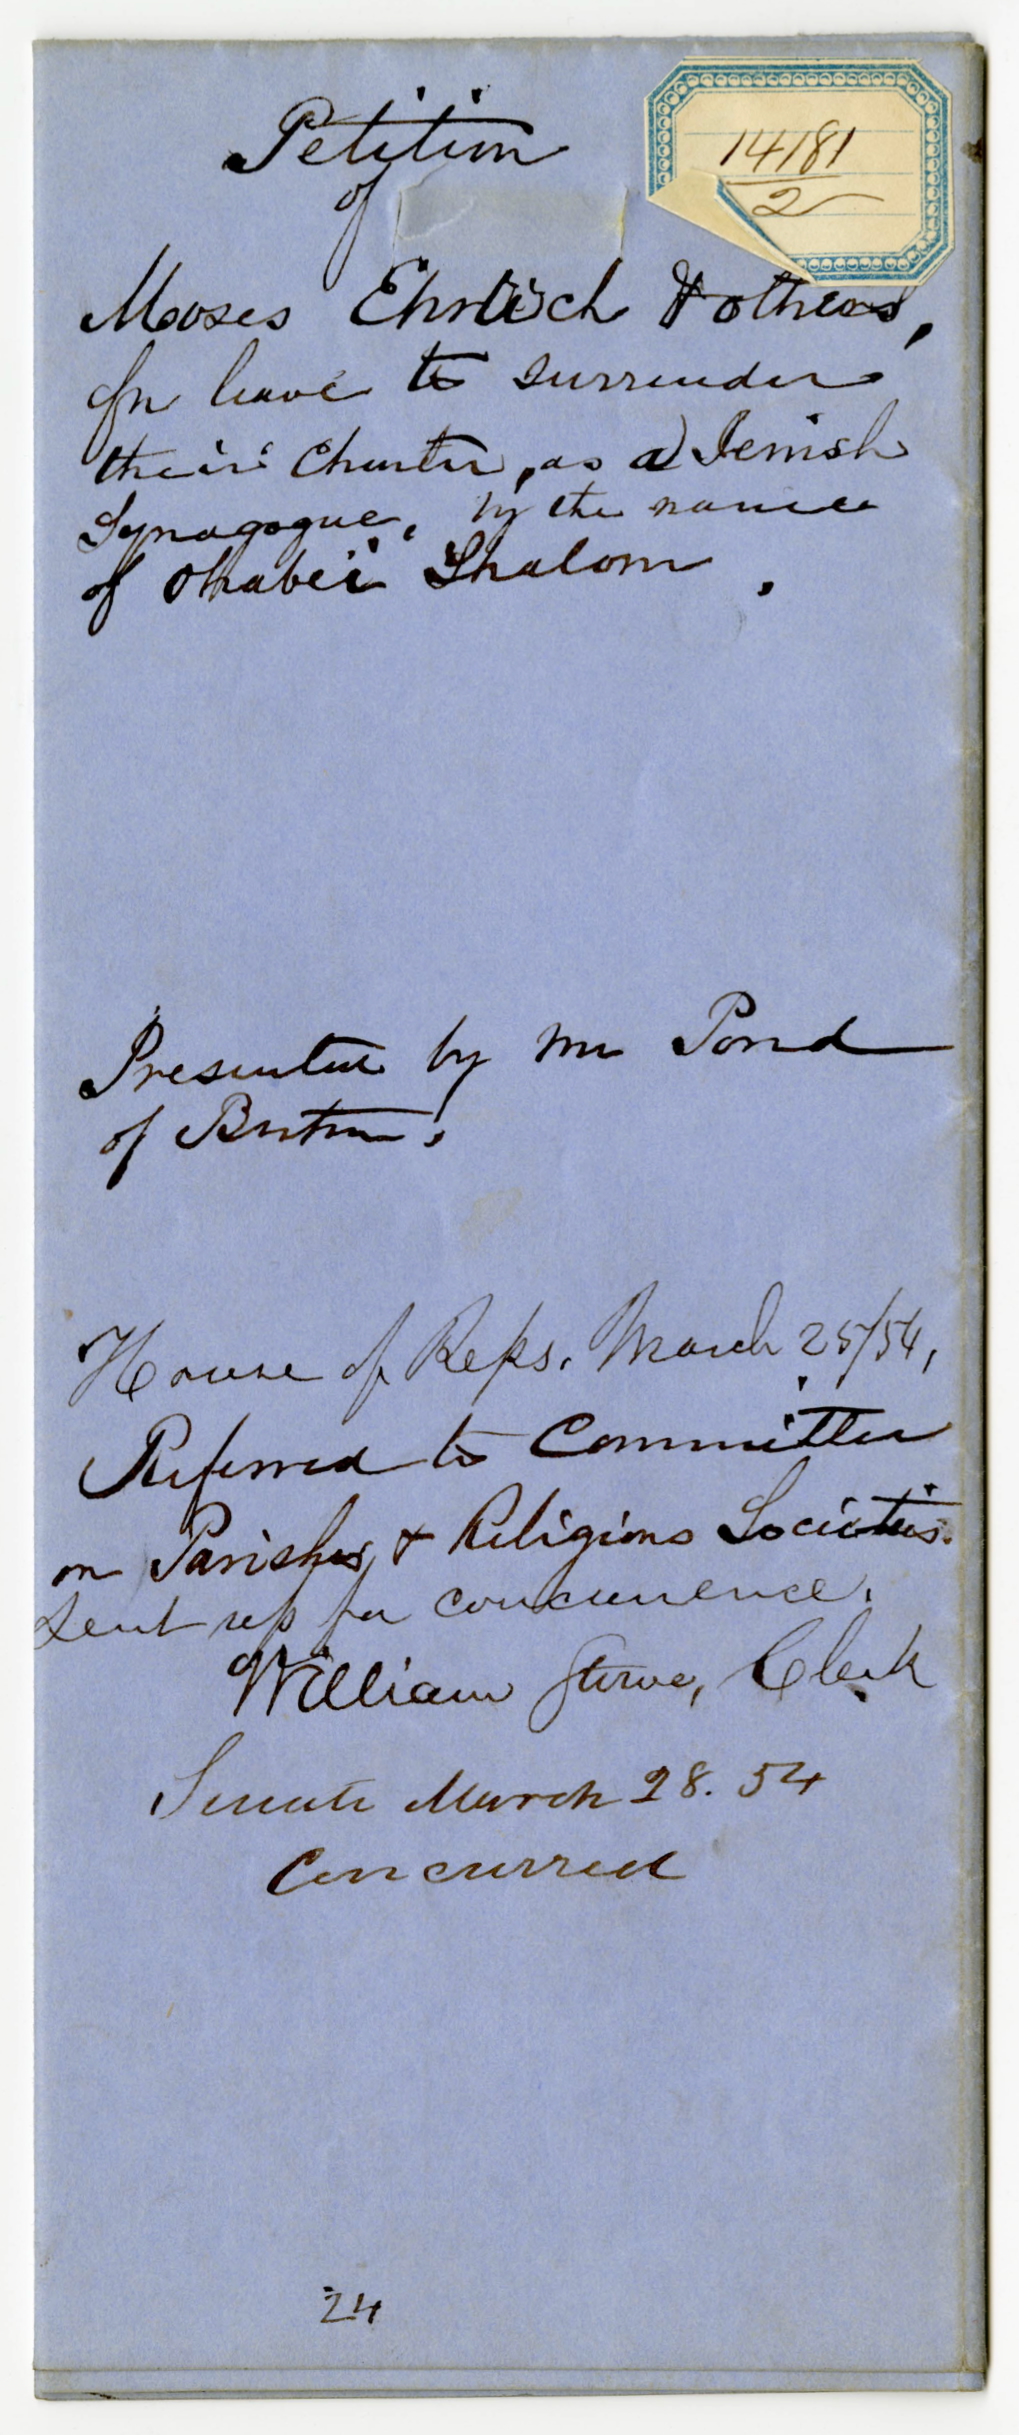 14181
2
Petition
of
Moses Ehrlich & others,
for leave to surrender
their Charter, as a Jewish
Synagogue, by the name
of Ohabei Shalom.
Presented by Mr Pond
of Boston.
House of Reps. March 25/54,
Referred to Committee
on Parishes & Religious Societies.
Sent up for concurrence.
William Stowe, Clerk
Senate March 28. 54
Concurred
24